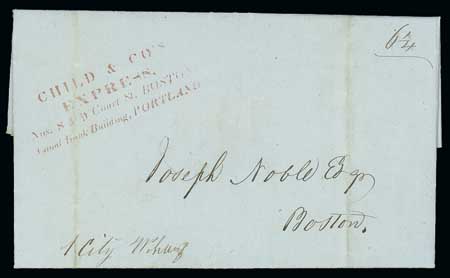 6¼
CHILD & CO'S
EXPRESS.
Nos. 8 & 9 Court St. BOSTON
Bank Building, PORTLAND
Joseph Noble Esqr
Boston.
1 City Wharf